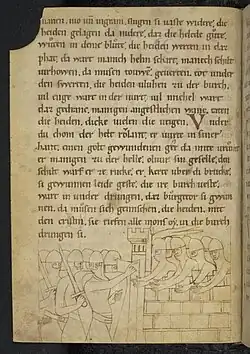 manen, nio un ingram, slugen si uaste widere, die
heiden gelagen da nidere, daz die helede gůte,
wůten in deme blůte, die heiden weren in daz
phat, da wart manich helm schart, manech schilt
uirhowen, da musen
den swerten, die heiden uluhen zu der burch,
uil enge wart in der wurt, uil michel wart
daz gedinne, manigen angestlichen wanc, taten
die heiden, dicke uielen die ueigen, Under
du chom der helt rölant, er uurte in siner
hant, einen golt gewundenen ger, da mite
er manigen zu der helle, oliuir sin geselle, den
schilt warf er ze rucke, er kerte uber di brucke,
si gewunnen leide geste, die ire burch ueste,
wart in under drungen, daz burgetor si gewun
nen, da můsen sich gemischen, die heiden, mite
den cristen, sie riefen alle monsoy, in die burch
drungen si.